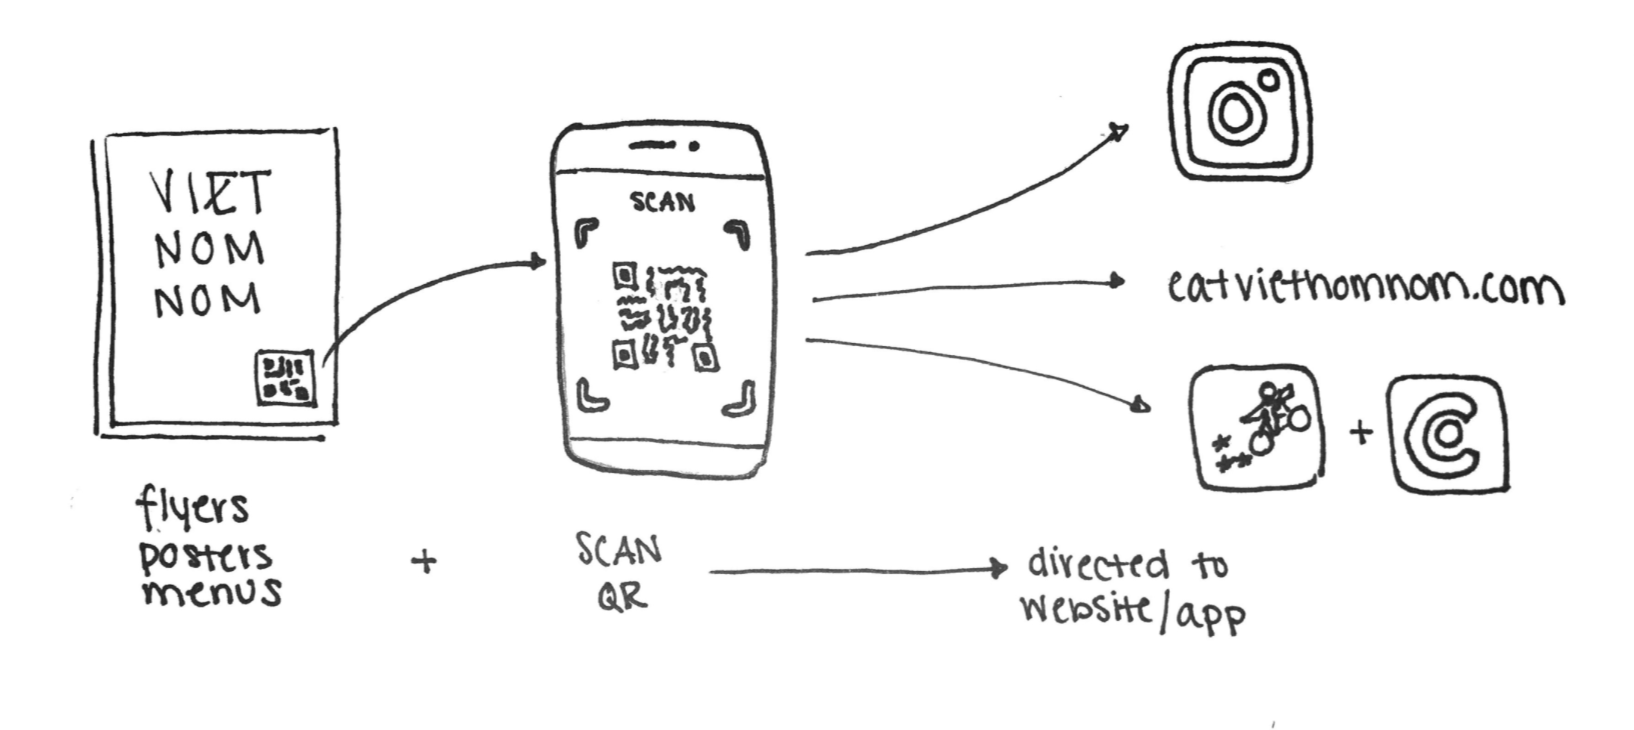 VIET
NOM
NOM
SCAN
eatvietnomnom.com
+
flyers
posters
menus
+
SCAN
QR
directed to
website/app